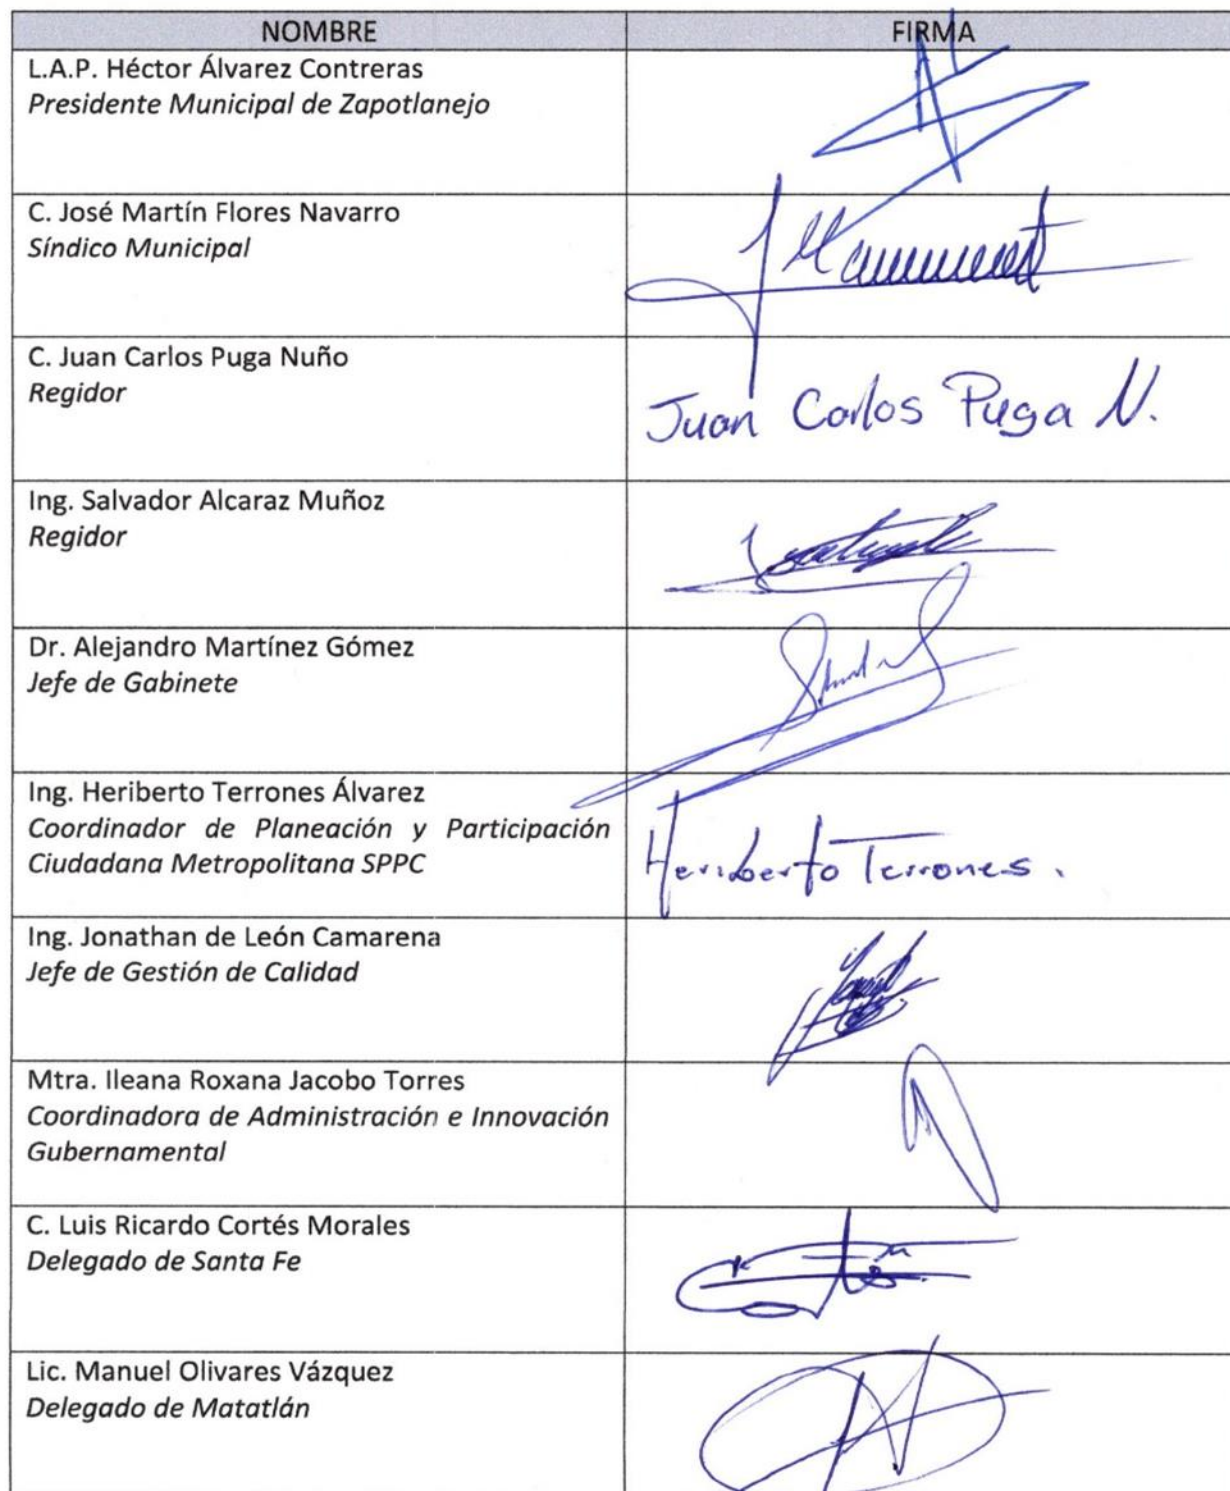 NOMBRE FIRMA
L.A.P. Héctor Álvarez Contreras
Presidente Municipal de Zapotlanejo
C. José Martín Flores Navarro
Síndico Municipal
C. Juan Carlos Puga Nuño
Regidor
Juan Carlos Puga N.
Ing. Salvador Alcaraz Muñoz
Regidor
Dr. Alejandro Martínez Gómez
Jefe de Gabinete
Ing. Heriberto Terrones Álvarez
Coordinador de Planeación y Participación
Ciudadana Metropolitana SPPC
Heriberto Terrones.
Ing. Jonathan de León Camarena
Jefe de Gestión de Calidad
Mtra. Ileana Roxana Jacobo Torres
Coordinadora de Administración e Innovación
Gubernamental
C. Luis Ricardo Cortés Morales
Delegado de Santa Fe
Lic. Manuel Olivares Vázquez
Delegado de Matatlán